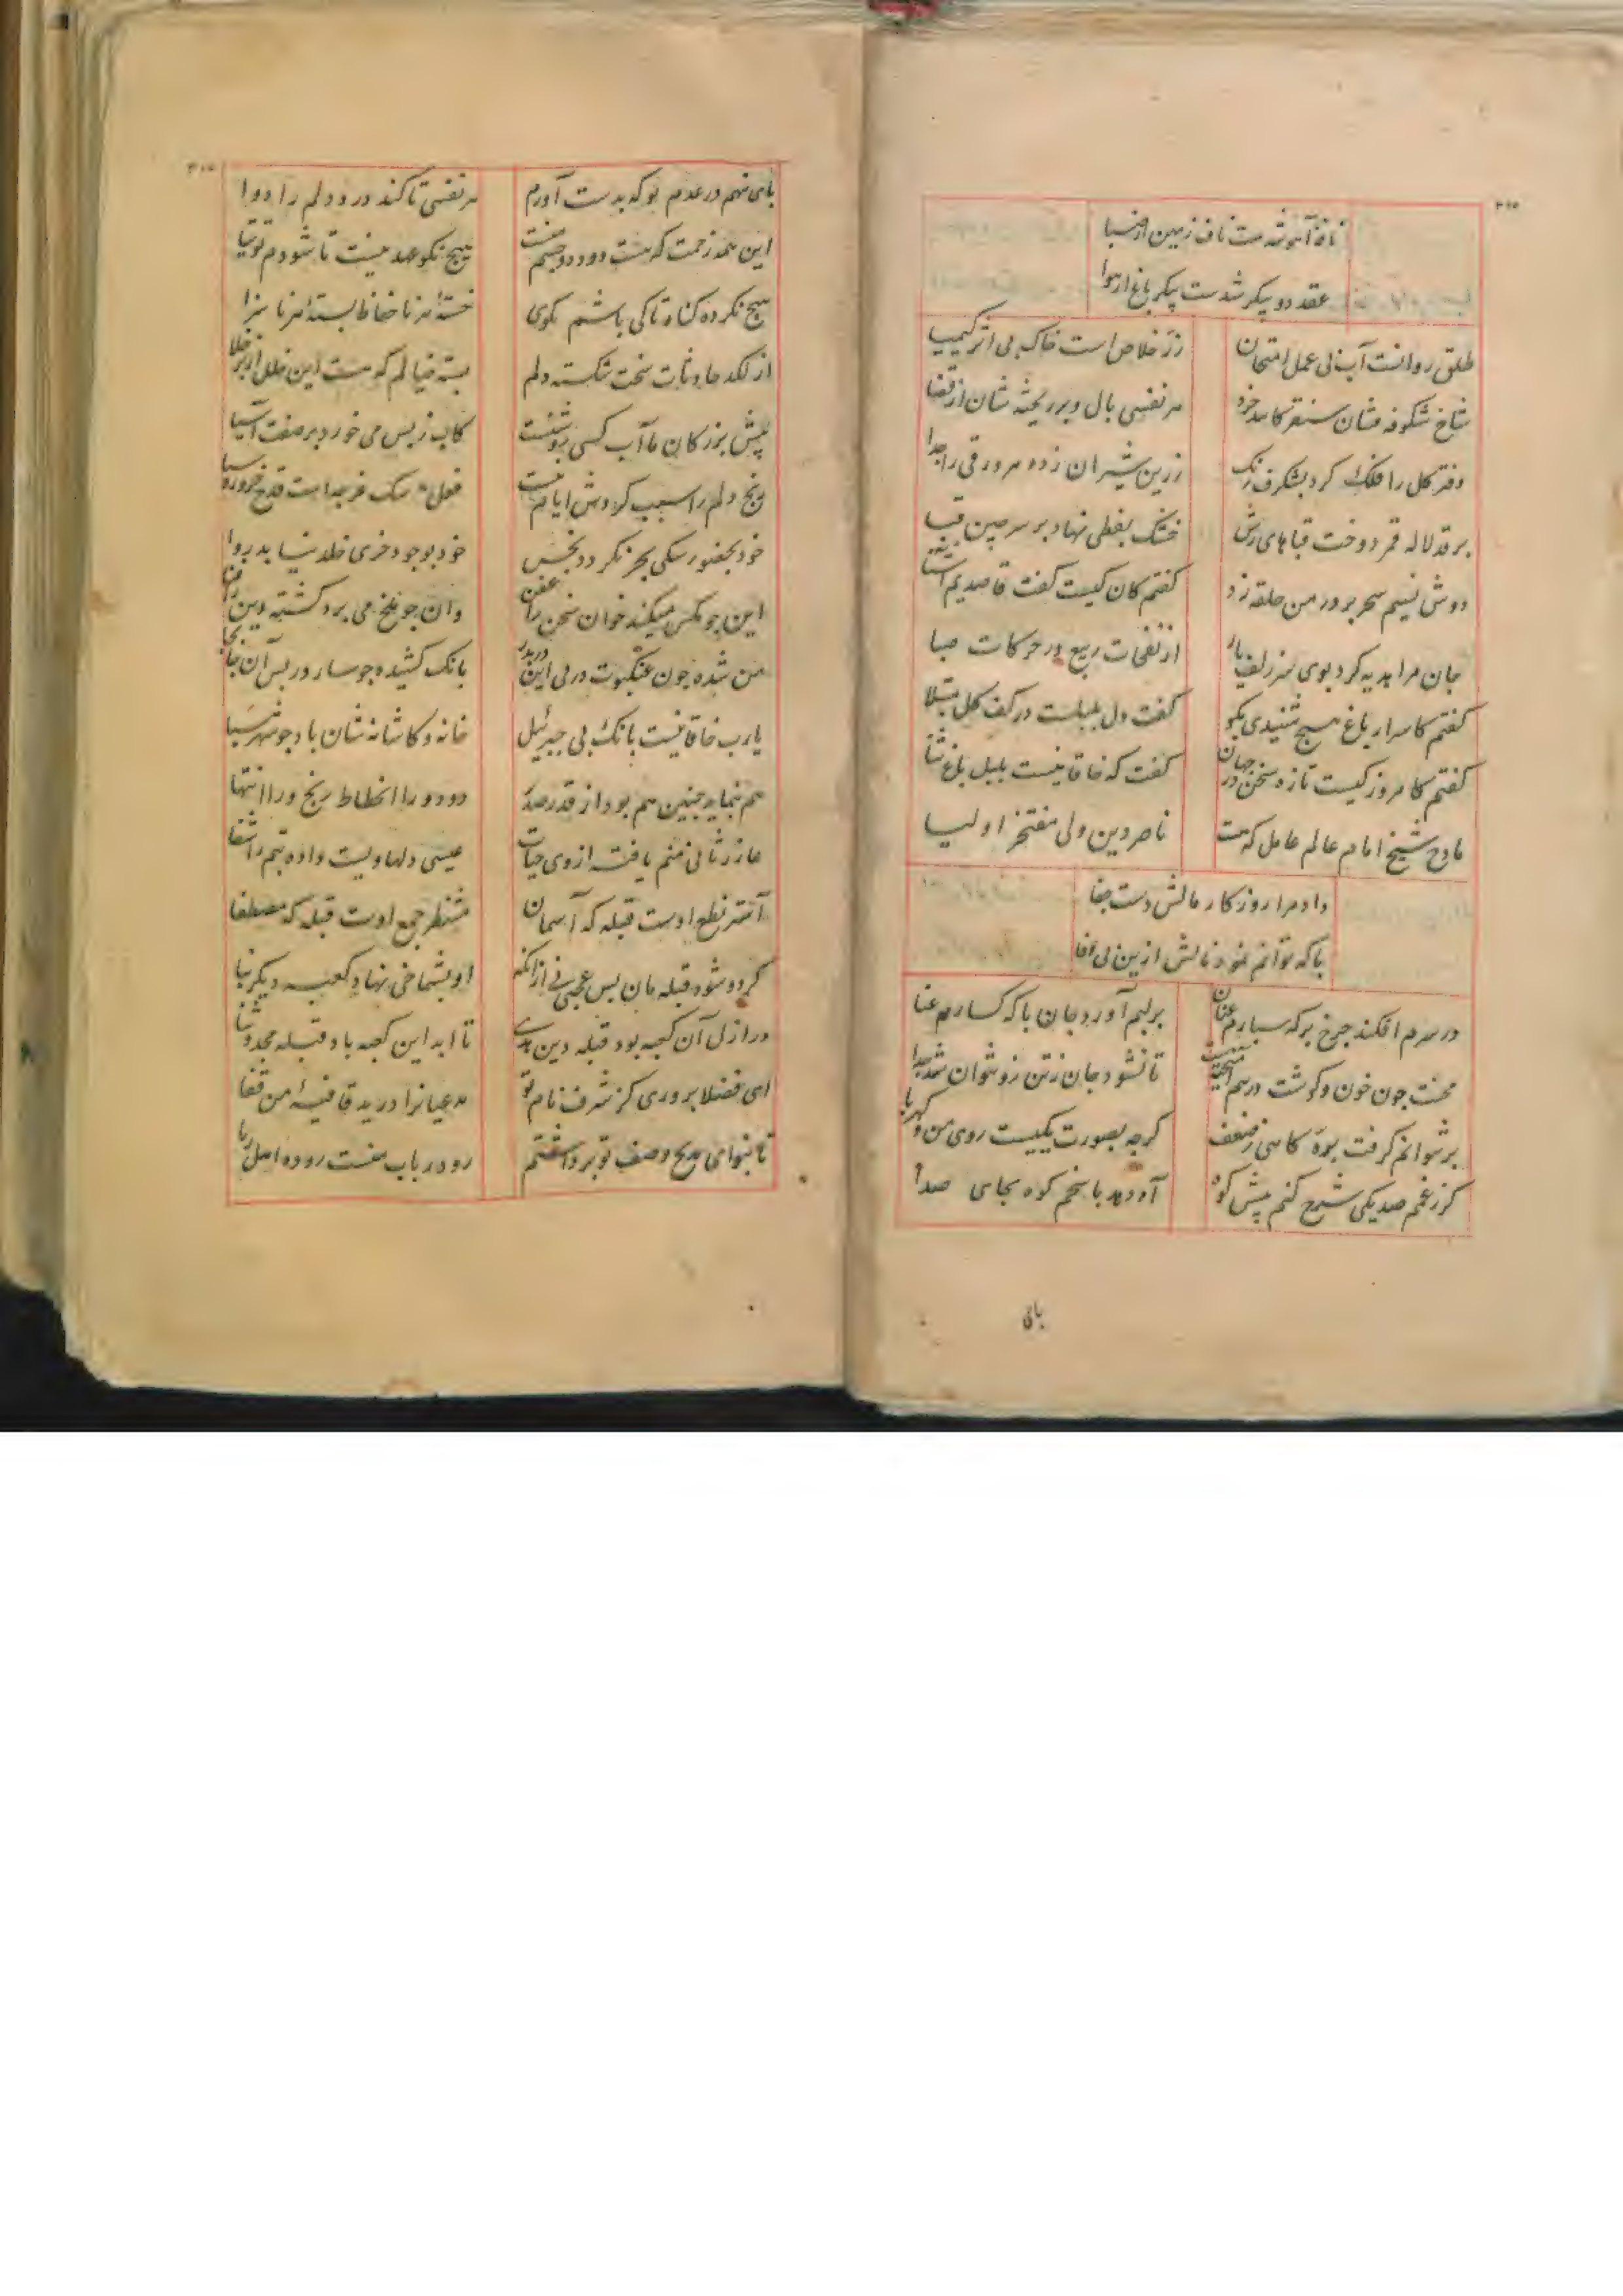 ۳۱۵
نافه آهو شدست ناف زمین از صبا
عقد دو پیکر شدست پیکر باغ از هوا
طلق روانست آب بی عمل امتحان
زر خلاص است خاک بی اثر کیمیا
شاخ شکوفه فشان سنقر کامد خرد
هر نفسی بال و پر ریخته شان از قضا
دفتر کل را فلک کرد بشنکرف رنک
زرین شیران زده هر ورقی را جدا
بر قد لاله قمر دوخت قباهای رش
خشتک نفطی نهاد بر سر چین قبا
دوش نسیم سحر بر در من حلقه زد
کفتم کان کیست کفت قاصدیم آشنا
جان مرا هدیه کرد بوی سر زلف یار
از نفحات ربیع در حرکات صبا
کفتم کاسرار باغ هیچ شنیدی بکو
کفت دل بلبلست در کف کل مبتلا
کفتم کامروز کیست تازه سخن در جهان
کفت که خاقانیست بلبل باغ ثنا
مادح شیخ امام عالم عامل که هست
ناصر دین ولی مفتخر اولیا
داد مرا روزکار مالش دست جفا
با که توانم نمود نالش ازین بی وفا
در سرم افکند چرخ با که سپارم عنان
بر لبم آورد جان با که کسارم عنا
محنت چون خون و کوشت در هم آمیختست
تا نشود جان ز تن زو نتوان شد جدا
بر نتوانم کرفت پره کاهی ز ضعف
کرچه بصورت یکیست روی من و کهربا
کر ز غم صد یکی شرح کنم پیش کوه
آه دهد پاسخم کوه بجای صدا
پای
پای نهم در عدم بو که بدست آورم
هر نفسی تا کند درد دلم را دوا
این همه زحمت که هست درد دو چشم منست
هیچ نکو عهد نیست تا شودم توتیا
هیچ نکرده کناه تا کی باشم بکوی
خسته هر ناحفاظ بسته هر ناسزا
از لکد حادثات سخت شکسته دلم
بسته خیالم که هست این خلل از بوالعلا
پیش بزرکان ما آب کسی روشنست
کاب ز پس می خورد بر صفت آسیا
رنج دلم را سبب کردش ایام نیست
فعل سک غرچه است قدح خر روستا
خود بحضور سکی بحر نکردد نجس
خود بوجود خری خلد نیابد وبا
این چو مکس میکند خوان سخن را عفن
وان چو ملخ می برد کشته دین را نما
من شده چون عنکبوت در پی این در بدر
بانک کشیده چو سار در پس آن جا بجا
یارب خاقانیست بانک پی جبرئیل
خانه و کاشانه شان باد چو شهر سبا
هم بنماید چنین هم بود از قدر صدر
درد ورا انحطاط رنج ورا انتها
عازر ثانی منم یافته از وی حیات
عیسی دلها ویست داده تنم را شفا
آنت نطع اوست قبله که آسمان
منتظر جمع اوست قبله که مصطفا
کر دو شود قبله مان بس عجبی نی از آنکه
او بشماخی نهاد کعبه دیکر بنا
در ازل آن کعبه بود قبله دین هدی
تا ابد این کعبه باد قبله مجد و ثنا
ای فضلا پروری کز شرف نام تو
مدعیانرا درید قافیه من قفا
تا بنوای مدیح وصف تو برداشتم
رود رباب منست روده اهل ریا